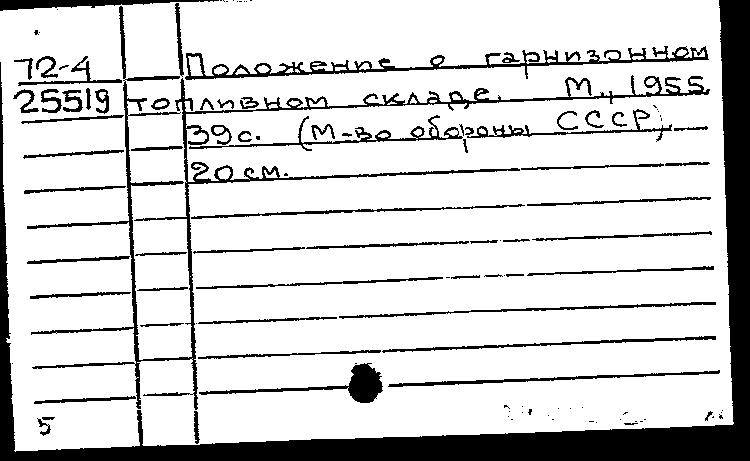 72-4 Положение о гарнизонном
25519 топливном складе. М., 1955.
39 с. (М-во обороны СССР).
20 см.
5